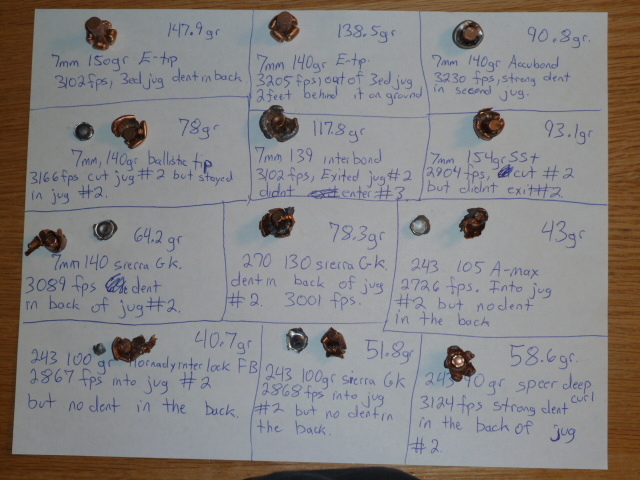 147.9gr
7mm 150gr E-tip
3102 fps, 3ed jug dent in back
138.5gr
7mm 140gr E-tip.
3205 fps, out of 3ed jug
2 feet behind it on ground
90.8gr
7mm 140gr Accubond
3230 fps, strong dent
in second jug.
78gr
7mm, 140gr ballistic tip
3166 fps cut jug #2 but stayed
in jug #2.
117.8gr
7mm 139 interbond
3102 fps, Exited jug #2
didnt enter #3
93.1gr
7mm 154gr SSt
2904 fps, cut #2
but didnt exit #2
64.2 gr
7mm 140 sierra Gk.
3089 fps dent
in back of jug #2.
78.3gr
270 130 sierra Gk.
dent in back of jug
#2. 3001 fps.
43gr
243 105 A-max
2726 fps. Into jug
#2 but no dent
in the back
40.7gr
243 100 gr Hornady interlock FB
2867 fps into jug #2
but no dent in the back.
51.8gr
243 100gr sierra Gk
2868 fps into jug
#2 but no dent in
the back.
58.6gr.
243 90 gr speer deep
curl
3124 fps strong dent
in the back of jug
#2.